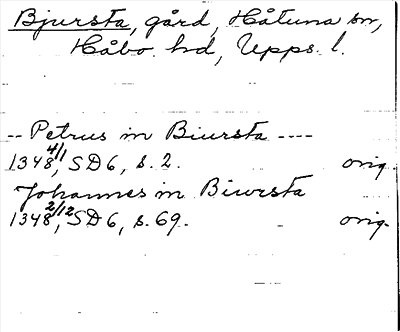 Bjursta, gård, Håtuna sn,
Håbo hd, Upps. l.
-- Petrus in Biursta ----
1348 4/1, SD6, s. 2. orig.
Johannes in Biwrsta
1348 2/12, SD6, s. 69. orig.